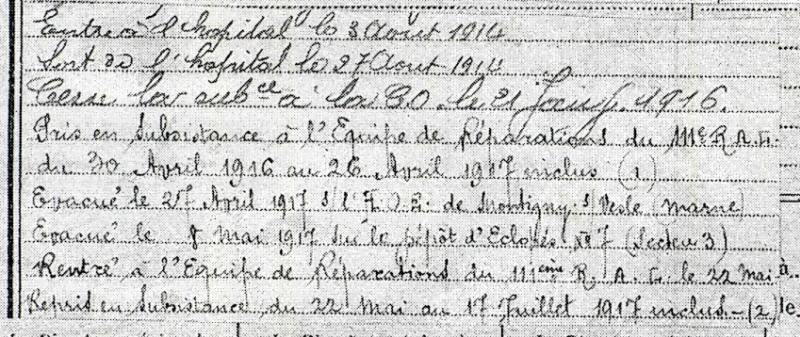 Entré à l'hopital le 3 Aout 1914
Sort de l'hopital le 27 Aout 1914
la subce à la le 21 1916.
Pris en Subsistance à l'Equipe de Réparations du 111e R.A.L.
du 30 Avril 1916 au 26 Avril 1917 inclus (1)
Evacué le 27 Avril 1917 s/ l'H.O.E. de Montigny s/ Vesle (Marne)
Evacué le 8 Mai 1917 sur le Dépôt d'Eclopés N° 7 (Secteur 3)
Rentré à l'Equipe de Réparations du 111ème R. A. L. le 22 Mai à
Repris en Subsistance du 22 Mai au 17 Juillet 1917 inclus - (2) le